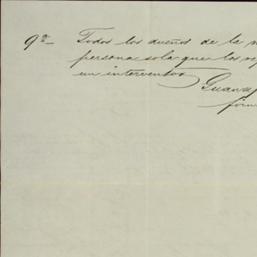 9ª- Todos los dueños de la
persona sola que los re
un interventor
Guana